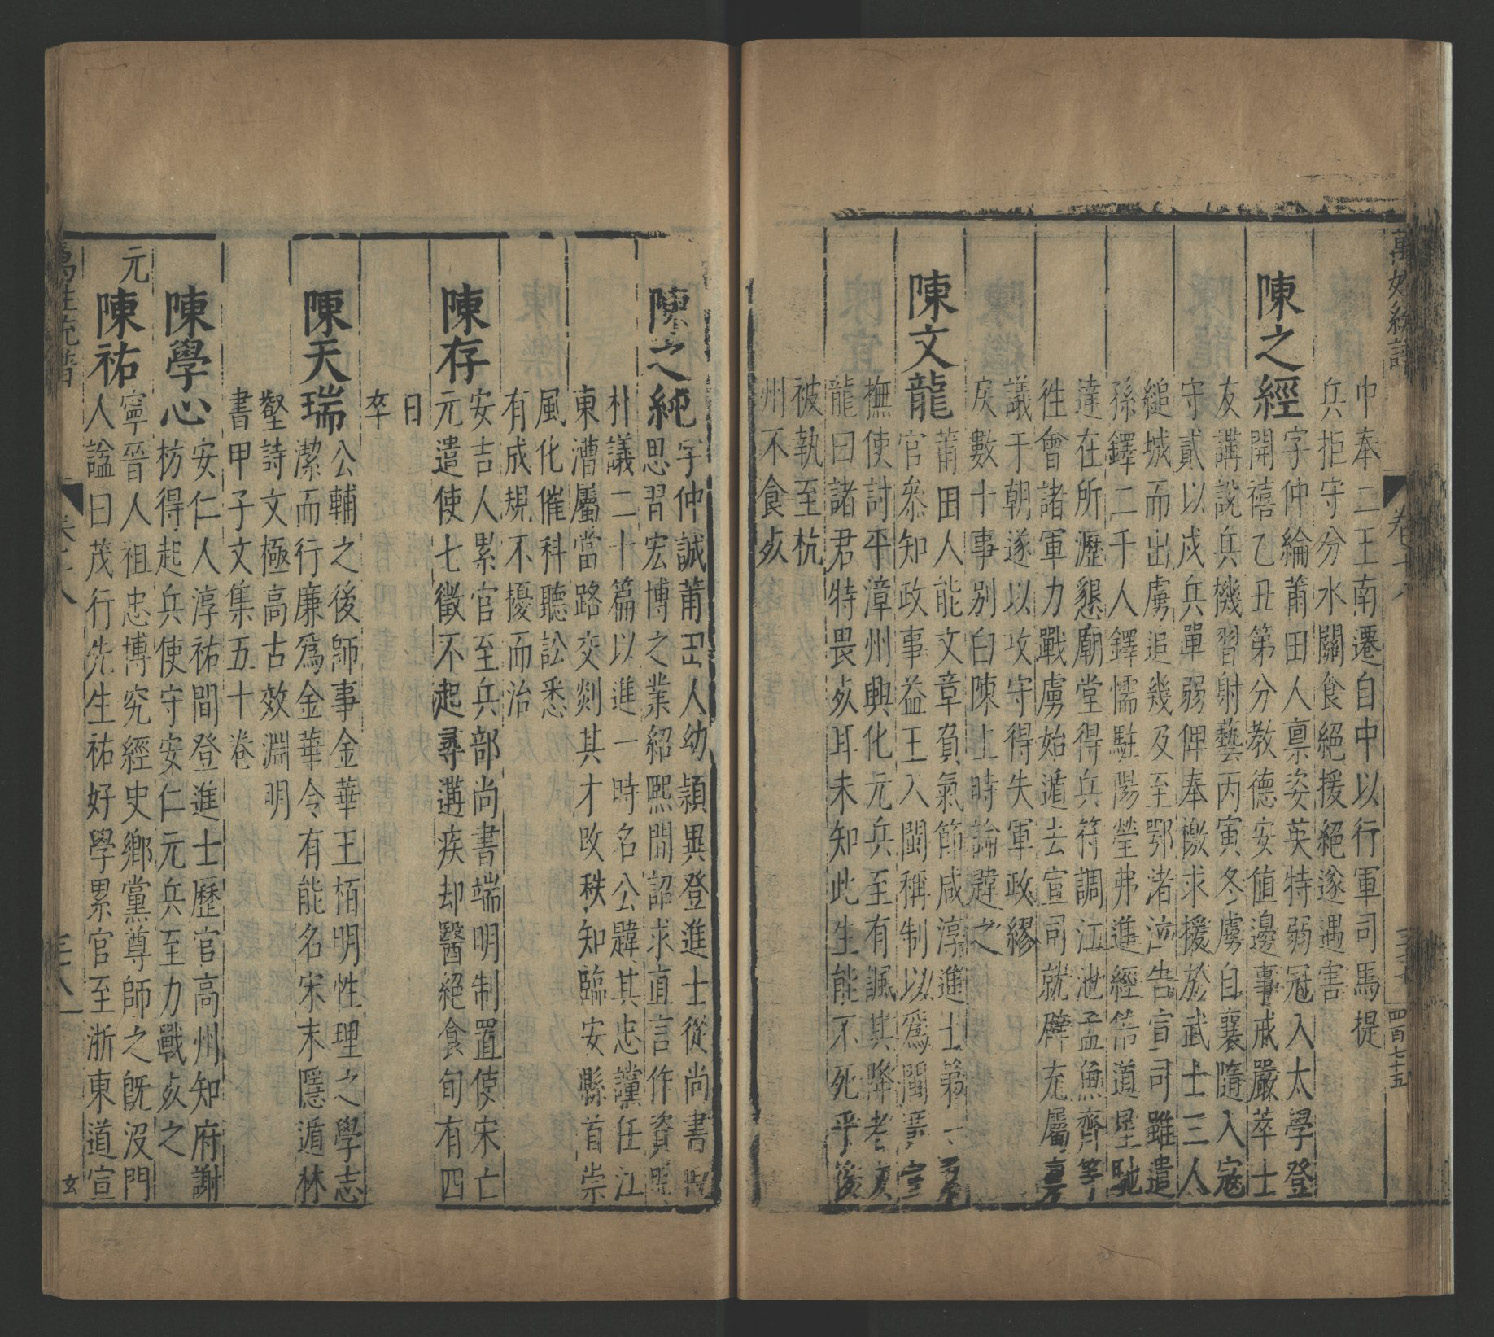 萬姓統譜
卷十八
四百七十五
中奉二王南遷自中以行軍司馬提
兵拒守分水關食絕援絕遂遇害
陳之經
字仲綸莆田人禀姿英特弱冠入太學登
開禧乙丑第分教德安值邊事戒嚴萃士
友講說兵機習射藝丙寅冬虜自襄隨入寇
守貳以戍兵單弱俾奉檄求援於武士三人
縋城而出虜追幾及至鄂渚泣告宣司雖遣
孫鐸二千人鐸懦駐陽瑩弗進經冒道星馳
達在所瀝懇廟堂得兵符調江池孟魚齊等
徃會諸軍力戰虜始遁去宣司就辟充屬
議于朝遂以攻守得失軍政繆
戾數十事別白陳上時論韙之
陳文龍
莆田人能文章負氣節咸淳進士第一
官叅知政事益王入閩稱制以為閩
撫使討平漳州興化元兵至有諷其降者文
龍曰諸君特畏死耳未知此生能不死乎後
被執至杭
州不食死
陳之純
字仲誠莆田人幼頴異登進士從尚書
思習宏博之業紹熙間詔求直言作資
朴議二十篇以進一時名公韙其忠讜任江
東漕屬當路交剡其才改秩知臨安縣首崇
風化催科聽訟悉
有成規不擾而治
陳存
安吉人累官至兵部尚書端明制置使宋亡
元遣使七徵不起尋遘疾却醫絕食旬有四
日
卒
陳天瑞
公輔之後師事金華王栢明性理之學志
潔而行廉爲金華令有能名宋末隱遁林
壑詩文極高古效淵明
書甲子文集五十卷
陳學心
安仁人淳祐間登進士歷官高州知府謝
枋得起兵使守安仁元兵至力戰死之
元
陳祐
寧晉人祖忠博究經史鄉黨尊師之旣沒門
人諡曰茂行先生祐好學累官至浙東道宣
萬姓統譜
卷十八
三十八
玄